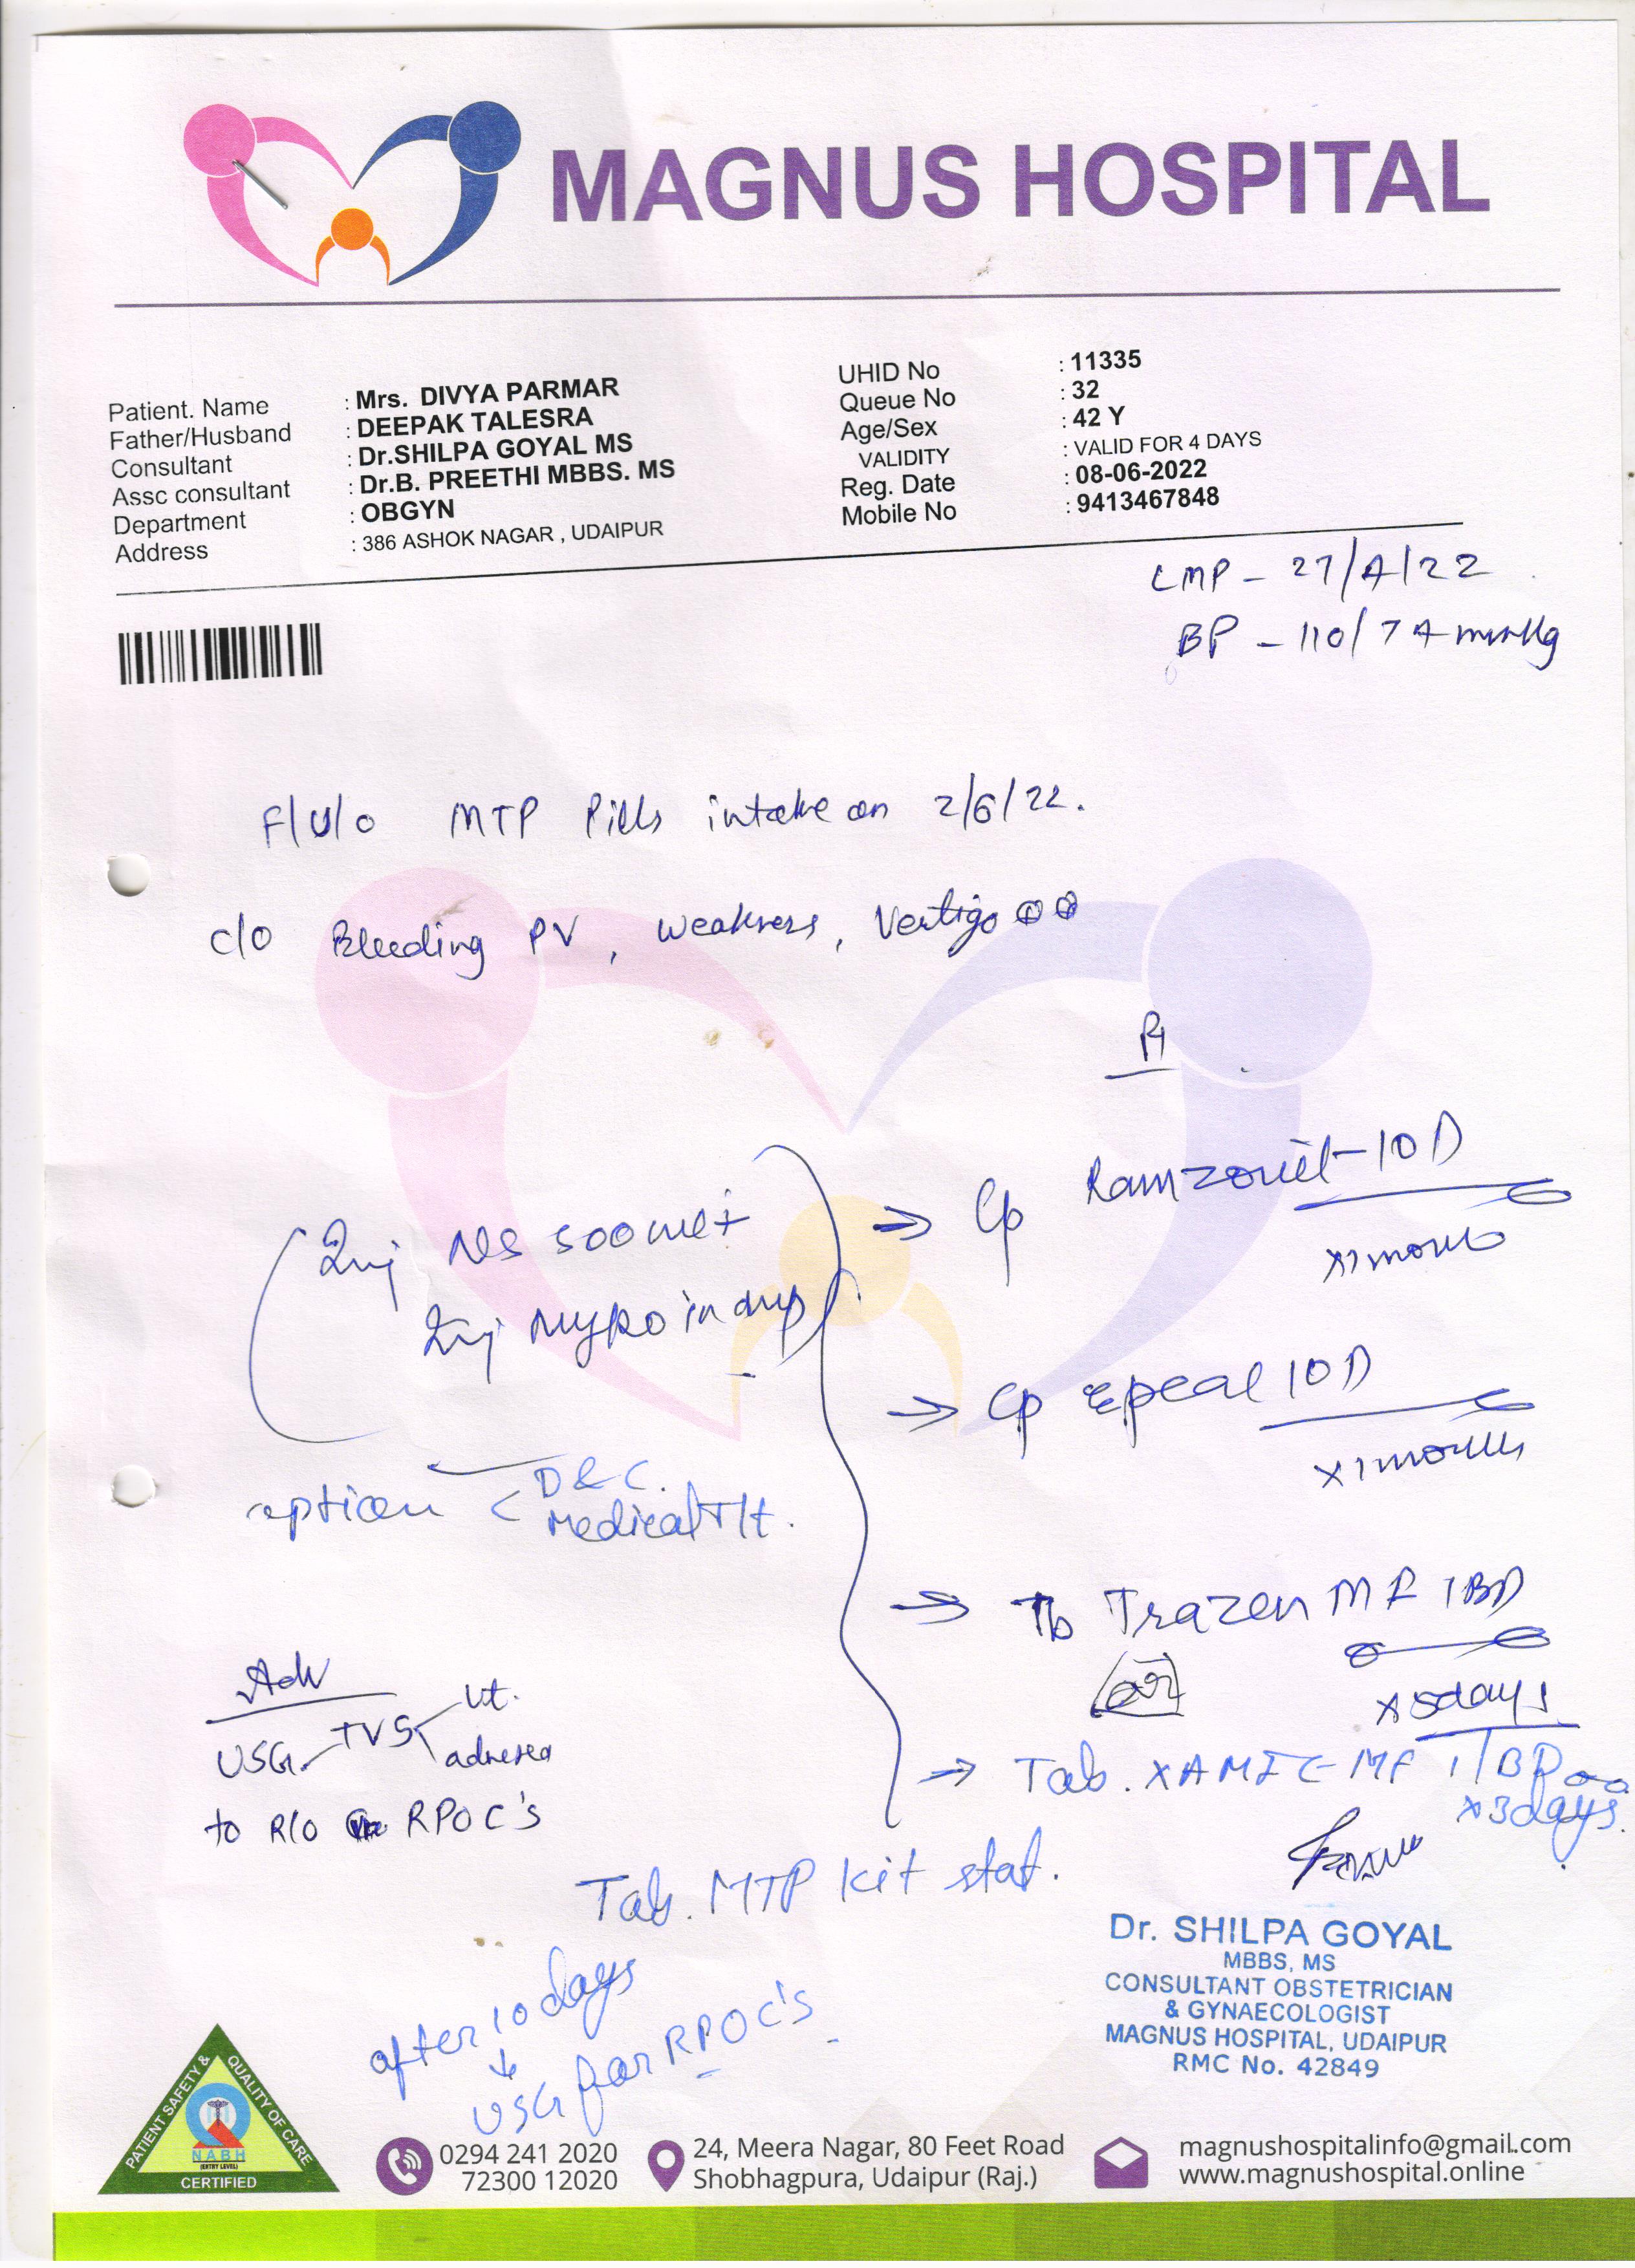 MAGNUS HOSPITAL
Patient. Name : Mrs. DIVYA PARMAR
Father/Husband : DEEPAK TALESRA
Consultant : Dr.SHILPA GOYAL MS
Assc consultant : Dr.B. PREETHI MBBS. MS
Department : OBGYN
Address : 386 ASHOK NAGAR , UDAIPUR
UHID No : 11335
Queue No : 32
Age/Sex : 42 Y
VALIDITY : VALID FOR 4 DAYS
Reg. Date : 08-06-2022
Mobile No : 9413467848
LMP - 27/4/22
BP - 110/74 mmHg
F/U/O MTP Pills intake on 2/6/22.
c/o Bleeding PV, Weakness, Vertigo
Inj NS 500
Inj in
option < D & C.
Medical T/t.
Adv
USG - TVS
to R/O RPOC's
→ Cp 10D
x 1 month
→ Cp 10D
x 1 month
→ Tb Trazen MF 1BD
or
x 5days
→ Tab. XAMIC-MF 1/BD
x 3days.
Tab. MTP Kit stat.
after 10 days
↓
USG for RPOC's
Dr. SHILPA GOYAL
MBBS, MS
CONSULTANT OBSTETRICIAN
& GYNAECOLOGIST
MAGNUS HOSPITAL, UDAIPUR
RMC No. 42849
PATIENT SAFETY & QUALITY OF CARE
NABH
(ENTRY LEVEL)
CERTIFIED
0294 241 2020
72300 12020
24, Meera Nagar, 80 Feet Road
Shobhagpura, Udaipur (Raj.)
magnushospitalinfo@gmail.com
www.magnushospital.online